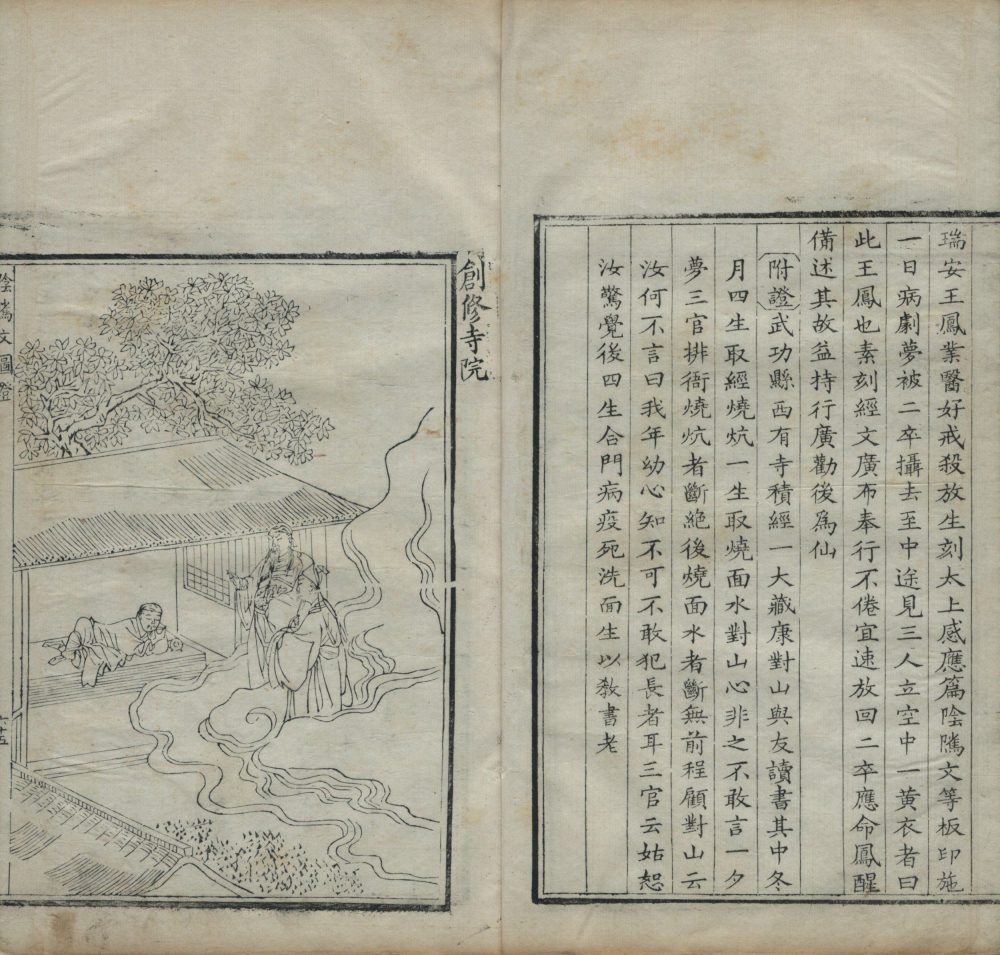 瑞安王鳳業醫好戒殺放生刻太上感應篇陰隲文等板印施
一日病劇夢被二卒攝去至中途見三人立空中一黄衣者曰
此王鳳也素刻經文廣布奉行不倦宜速放回二卒應命鳳醒
備述其故益持行廣勸後爲仙
附證武功縣西有寺積經一大藏康對山與友讀書其中冬
月四生取經燒炕一生取燒面水對山心非之不敢言一夕
夢三官排衙燒炕者斷絶後燒面水者斷無前程顧對山云
汝何不言曰我年幼心知不可不敢犯長者耳三官云姑恕
汝驚覺後四生合門病疫死洗面生以教書老
創修寺院
陰隲文圖證
六十五